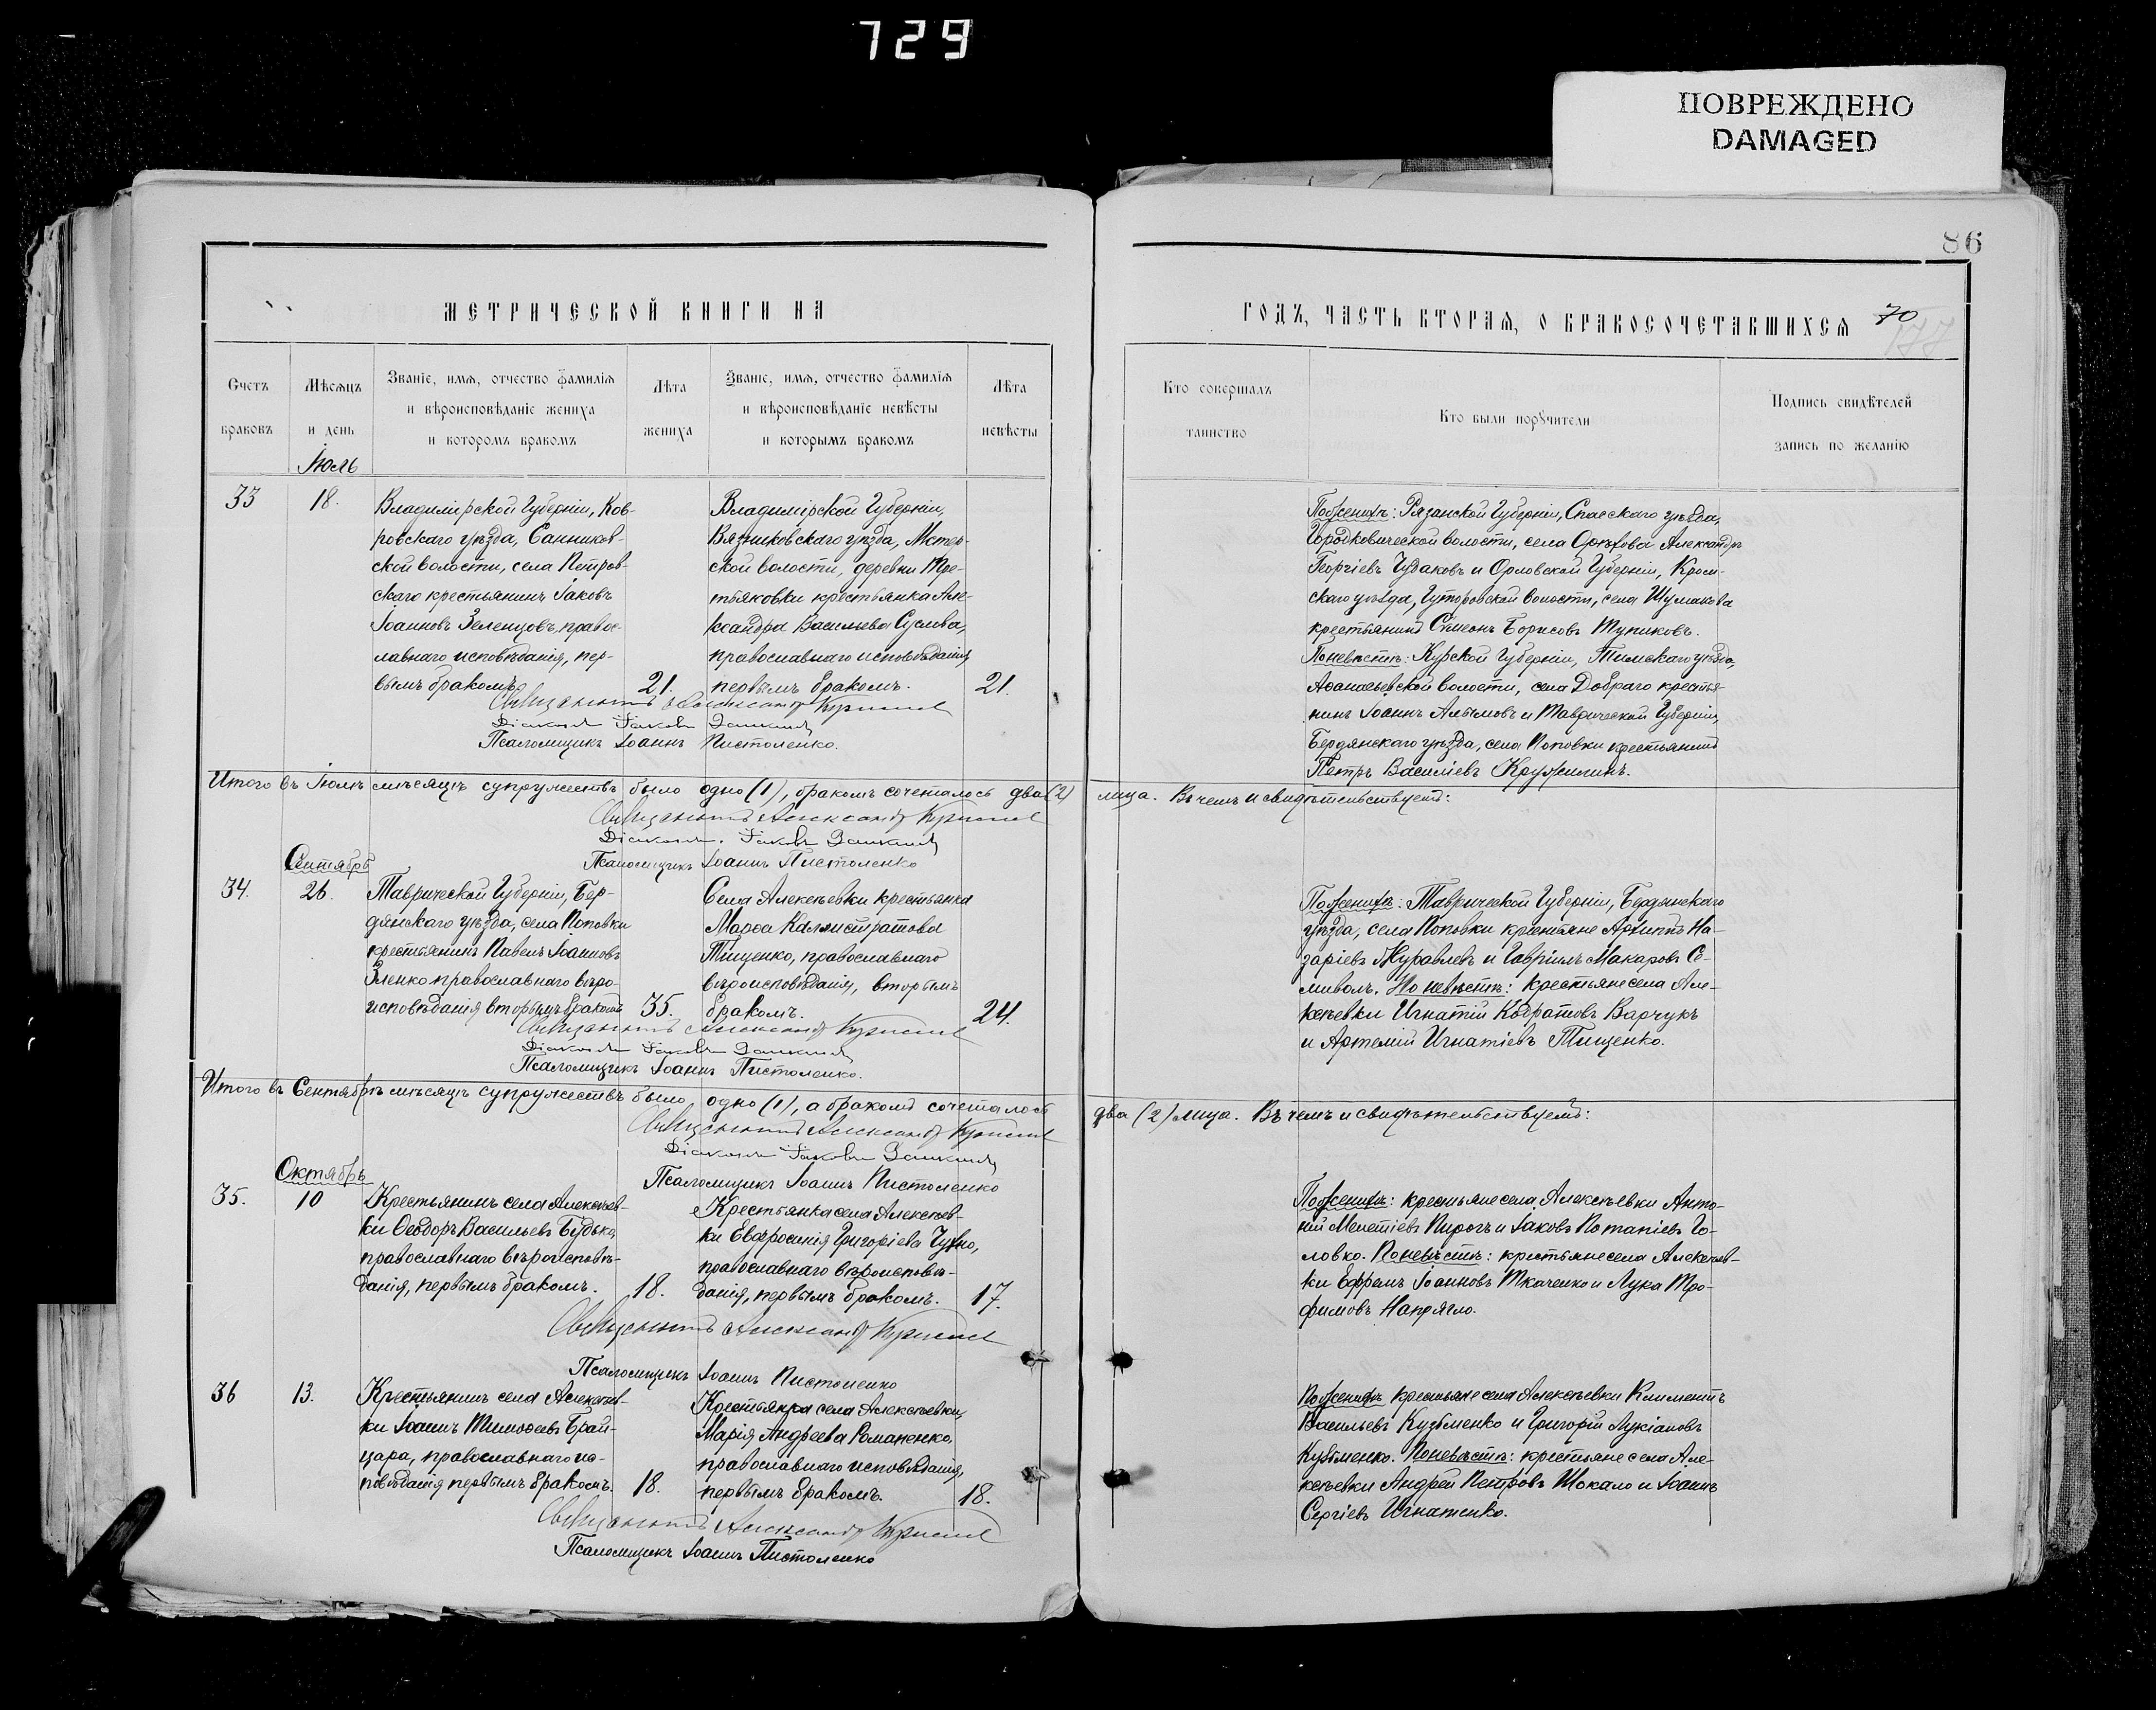 729
ПОВРЕЖДЕНО
DAMAGED
86
МЕТРИЧЕСКОЙ КНИГИ НА
ГОДЪ, ЧАСТЬ ВТОРАЯ, О БРАКОСОЧЕТАВШИХСЯ
70
177
Счетъ браковъ
Мѣсяцъ и день
Званіе, имя, отчество фамилія
и вѣроисповѣданіе жениха
и которомъ бракомъ
Лѣта жениха
Званіе, имя, отчество фамилія
и вѣроисповѣданіе невѣсты
и которымъ бракомъ
Лѣта невѣсты
Кто совершалъ таинство
Кто были поручители
Подпись свидѣтелей
запись по желанію
Іюль
33
18.
Владимірской Губерніи, Ков-
ровскаго уѣзда, Санников-
ской волости, села Петров-
скаго крестьянинъ Іаковъ
Іоанновъ Зеленцовъ, правос-
лавнаго исповѣданія, пер-
вымъ бракомъ
21.
Владимірской Губерніи,
Вязниковскаго уѣзда, Мстер-
ской волости, деревни Тре-
тьяковки крестьянка Але-
ксандра Васильева Суслова,
православнаго исповѣданія
первымъ бракомъ.
21.
Поженихѣ: Рязанской Губерніи, Спасскаго уѣзда,
Городковической волости, села Орѣхова Александръ
Георгіевъ Чудаковъ и Орловской Губерніи, Кром-
скаго уѣзда, Гуторовской волости, села Шумакова
крестьянинъ Сѵмеонъ Борисовъ Тупиковъ.
Поневѣстѣ: Курской Губерніи, Тимскаго уѣзда,
Аѳанасьевской волости, села Добраго крестья-
нинъ Іоаннъ Алымовъ и Таврической Губерніи,
Бердянскаго уѣзда, села Поповки крестьянинъ
Петръ Василіевъ Кружилинъ.
Священникъ Александръ
Діаконъ Іаковъ
Псаломщикъ Іоаннъ Пистоленко.
Итого въ Іюлѣ мѣсяцѣ супружествъ было одно (1), бракомъ сочеталось два (2) лица. Въ чемъ и свидѣтельствуемъ:
Священникъ Александръ
Діаконъ Іаковъ
Псаломщикъ Іоаннъ Пистоленко
Сентябрь
34.
26.
Таврической Губерніи, Бер-
дянскаго уѣзда, села Поповки
крестьянинъ Павелъ Іоанновъ
Зленко православнаго вѣро-
исповѣданія вторымъ бракомъ
35.
Села Алексѣевки крестьянка
Марѳа Каллистратова
Тищенко, православнаго
вѣроисповѣданія, вторымъ
бракомъ.
24.
Поженихѣ: Таврической Губерніи, Бердянскаго
уѣзда, села Поповки крестьяне Архиппъ На-
заріевъ Журавлевъ и Гавріилъ Макаровъ Се-
миволъ. По невѣстѣ: крестьяне села Але-
ксѣевки Игнатій Кодратовъ Варчукъ
и Артемій Игнатіевъ Тищенко.
Священникъ Александръ
Діаконъ Іаковъ
Псаломщикъ Іоаннъ Пистоленко.
Итого въ Сентябрѣ мѣсяцѣ супружествъ было одно (1), а бракомъ сочеталось два (2) лица. Въ чемъ и свидѣтельствуемъ:
Священникъ Александръ
Діаконъ Іаковъ
Псаломщикъ Іоаннъ Пистоленко
Октябрь
35.
10
Крестьянинъ села Алексѣев-
ки Ѳеодоръ Васильевъ Будько,
православнаго вѣроисповѣ-
данія, первымъ бракомъ.
18.
Крестьянка села Алексѣев-
ки Евфросинія Григоріева Чухно,
православнаго вѣроисповѣ-
данія, первымъ бракомъ.
17.
Поженихѣ: крестьяне села Алексѣевки Анто-
ній Мелетіевъ Пирогъ и Іаковъ Потапіевъ Го-
ловко. Поневѣстѣ: крестьяне села Алексѣев-
ки Ефремъ Іоанновъ Ткаченко и Лука Тро-
фимовъ Напрягло.
Священникъ Александръ
Псаломщикъ Іоаннъ Пистоленко
36
13.
Крестьянинъ села Алексѣев-
ки Іоаннъ Тимоѳеевъ Брай-
цара, православнаго ис-
повѣданія первымъ бракомъ.
18.
Крестьянка села Алексѣевки
Марія Андреева Романенко,
православнаго исповѣданія,
первымъ бракомъ.
18.
Поженихѣ крестьяне села Алексѣевки Климентъ
Васильевъ Кузьменко и Григорій Лукіановъ
Кузьменко. Поневѣстѣ: крестьяне села Але-
ксѣевки Андрей Петровъ Шокало и Іоаннъ
Сергіевъ Игнатенко.
Священникъ Александръ
Псаломщикъ Іоаннъ Пистоленко